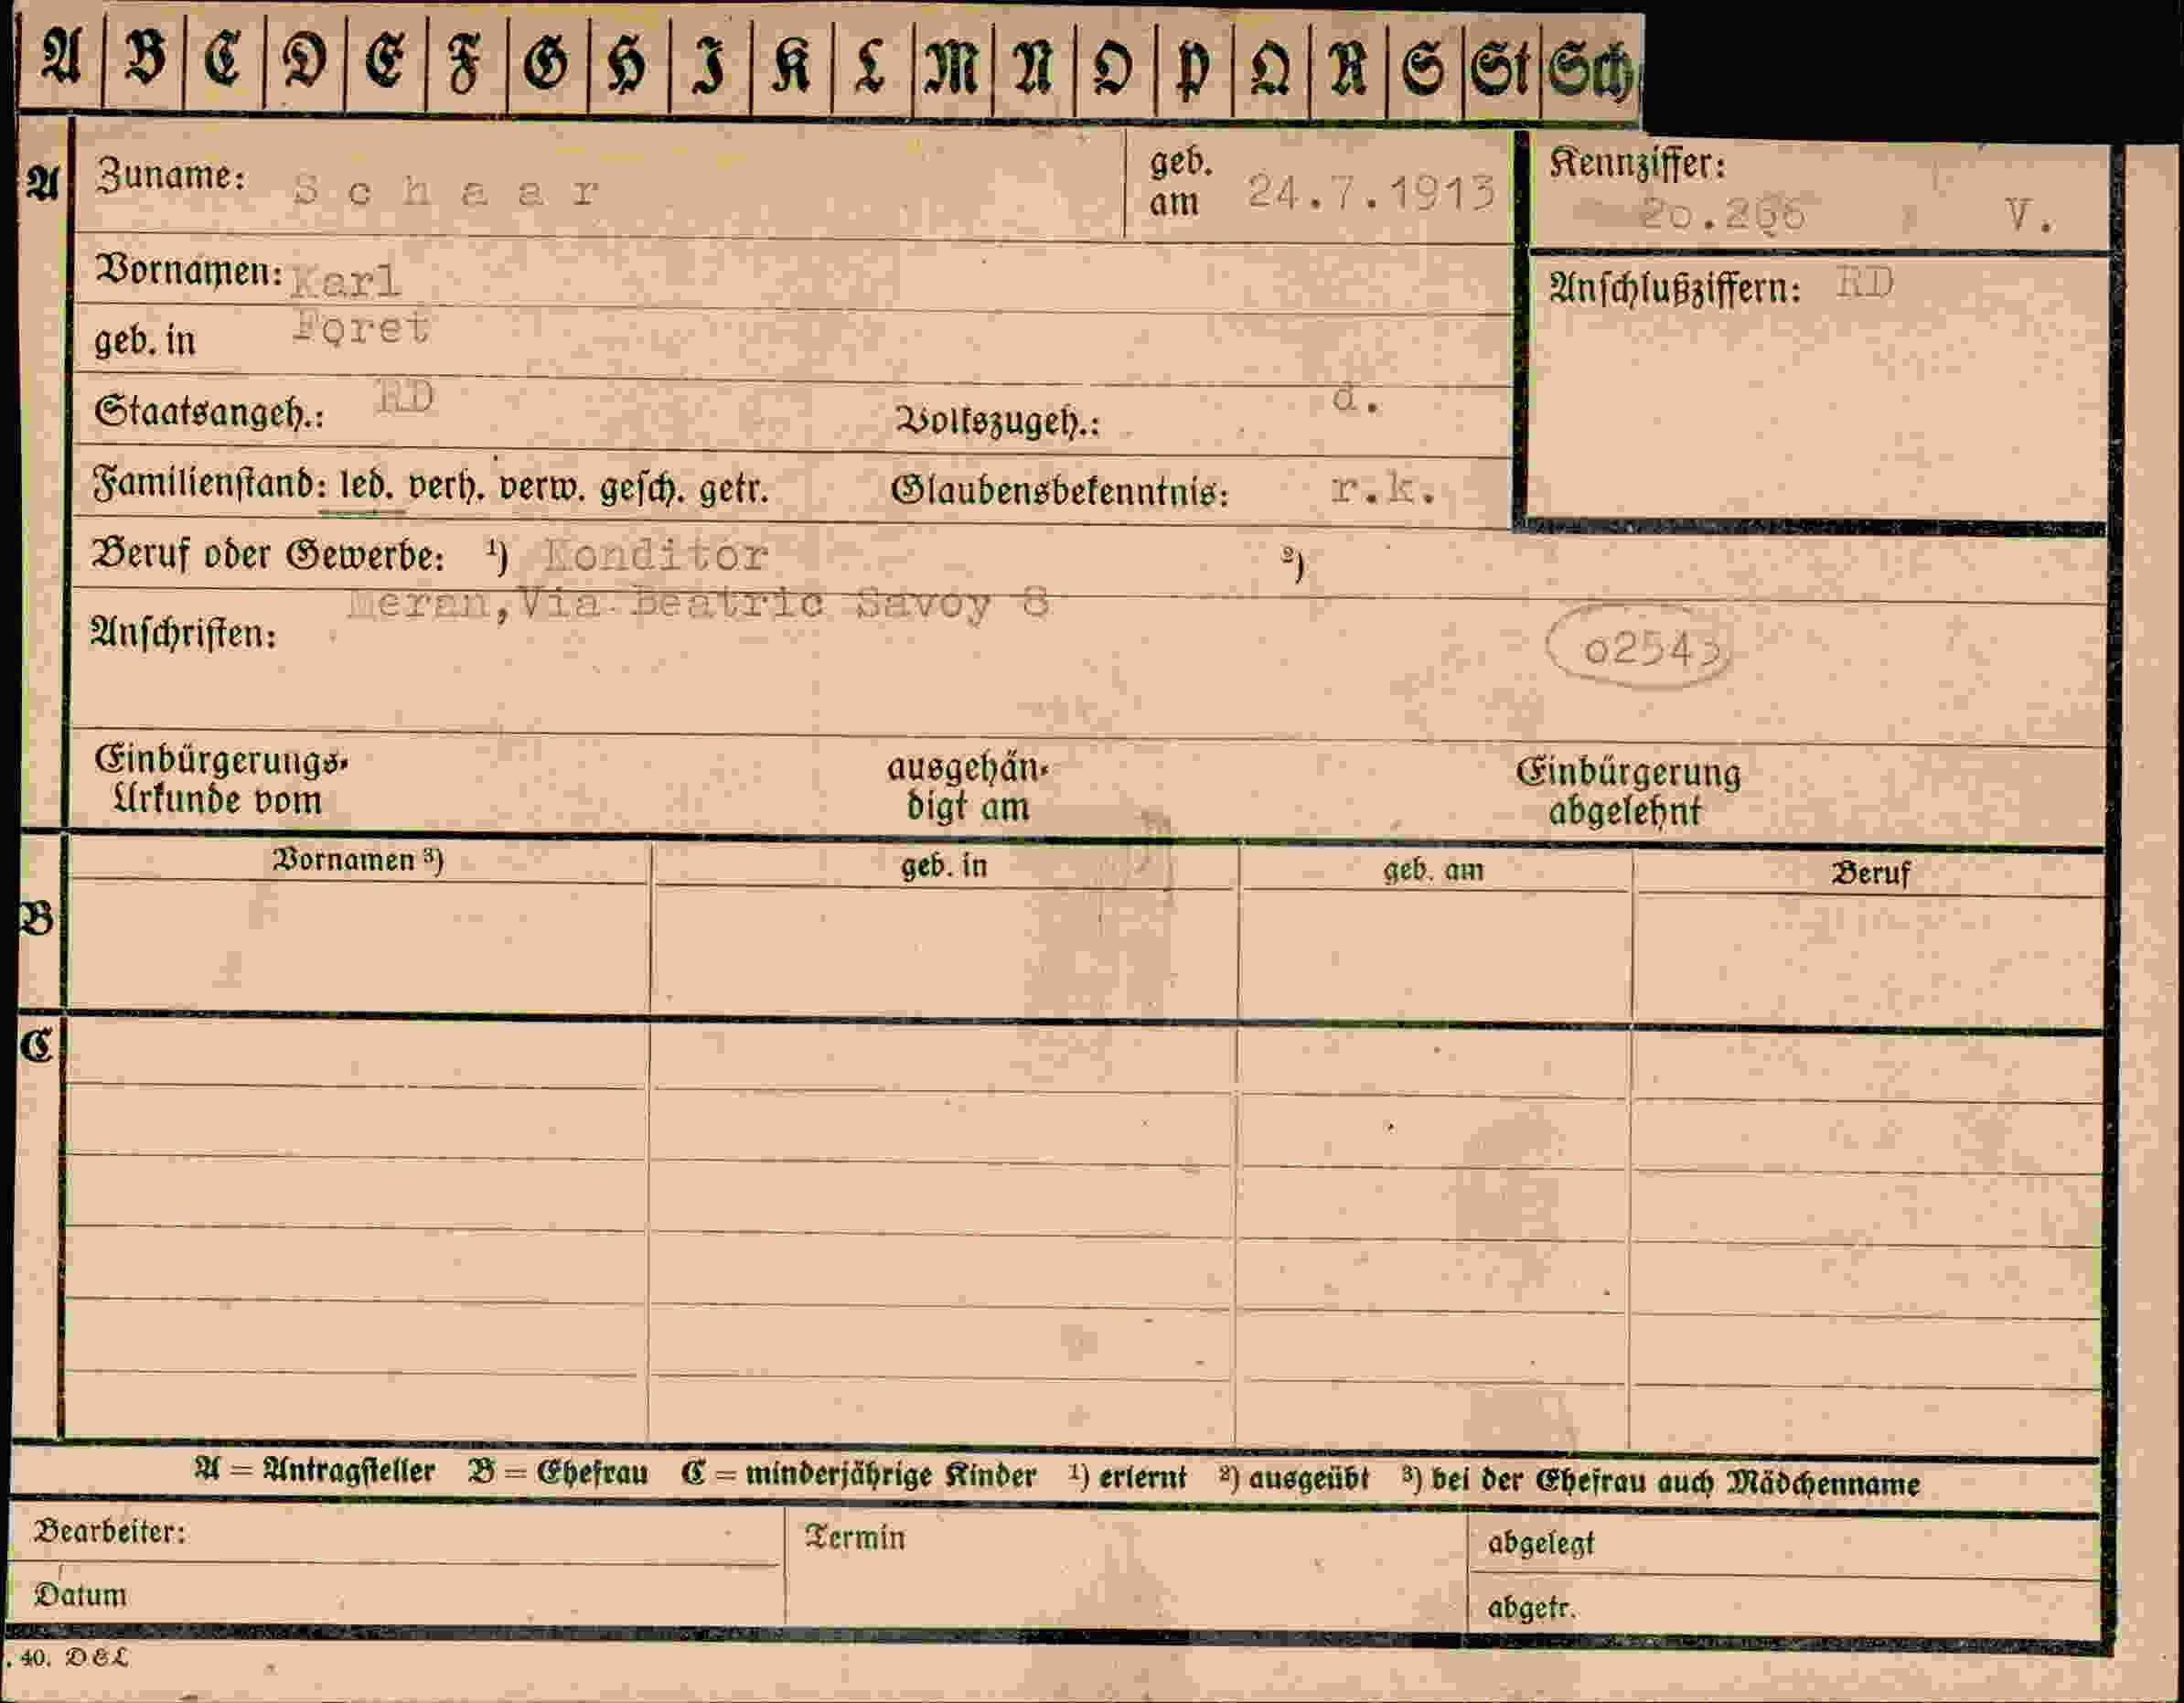 A B C D E F G H I K L M N O P Q R S St Sch
A Zuname: Schaar geb. am 24.7.1913 Kennziffer: V.
Vornamen: Karl Anschlußziffern: RD
geb. in Foret
Staatsangeh.: RD Volkszugeh.: d.
Familienstand: led. verh. verw. gesch. getr. Glaubensbekenntnis: r.k.
Beruf oder Gewerbe: ¹) Konditor ²)
Meran, Via Beatric Savoy 8
Anschriften: 02543
Einbürgerungs- ausgehän- Einbürgerung
Urkunde vom digt am abgelehnt
Vornamen ³) geb. in geb. am Beruf
B
C
A = Antragsteller B = Ehefrau C = minderjährige Kinder ¹) erlernt ²) ausgeübt ³) bei der Ehefrau auch Mädchenname
Bearbeiter: Termin abgelegt
Datum abgetr.
. 40. DEL